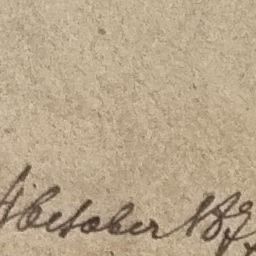 October 187